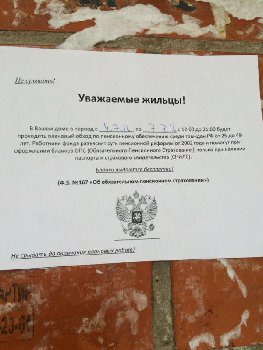 Не срывать!
Уважаемые жильцы!
В Вашем доме в период с 4.7.12 по 7.7.12 с 12:00 до 21:00 будет
проходить плановый обход по пенсионному обеспечению среди граждан РФ от 25 до 49
лет. Работники фонда разъяснят суть пенсионной реформы от 2002 года и помогут при
оформлении бланков ОПС (Обязательного Пенсионного Страхования) только при наличии
паспорта и страхового свидетельства (СНИЛС).
Бланки выдаются бесплатно!
(Ф.З. №167 «Об обязательном пенсионном страховании»)
Не срывать до окончания плановых работ!